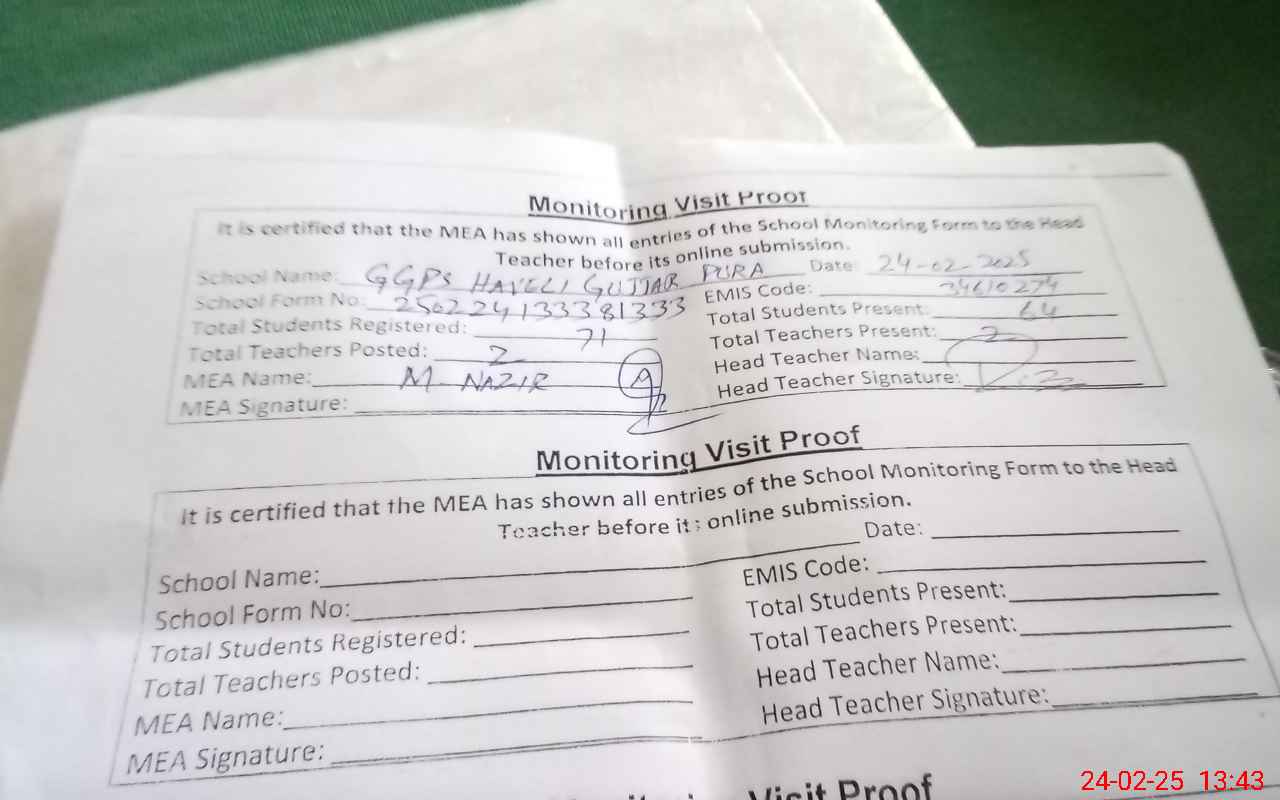 Monitoring Visit Proof
It is certified that the MEA has shown all entries of the School Monitoring Form to the Head
Teacher before its online submission.
School Name: GGPS HAVELI GUJJAR PURA Date: 24-02-2025
School Form No: 250224133381333 EMIS Code: 34610274
Total Students Registered: 71 Total Students Present: 64
Total Teachers Posted: 2 Total Teachers Present: 2
MEA Name: M. NAZIR Head Teacher Name:
MEA Signature: Head Teacher Signature:
Monitoring Visit Proof
It is certified that the MEA has shown all entries of the School Monitoring Form to the Head
Teacher before its online submission.
School Name: Date:
School Form No: EMIS Code:
Total Students Registered: Total Students Present:
Total Teachers Posted: Total Teachers Present:
MEA Name: Head Teacher Name:
MEA Signature: Head Teacher Signature:
Monitoring Visit Proof
24-02-25 13:43